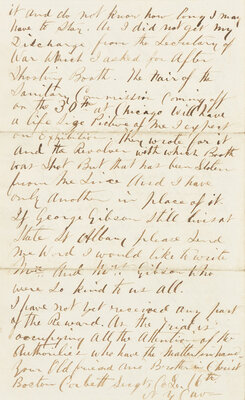 it and do not know how long I may
have to stay. As I did not get my
Discharge from the Secretary of
War Which I asked for After
Shooting Booth. The Fair of the
Sanitary Commission Coming off
on the 30th at Chicago Will have
a life size Picture of Me I expect
on Exhibition They wrote for it
And the Revolver with which Booth
was Shot But that has been Stolen
from Me Since And I have
only Another in place of it
If George Gibson Still lives at
State St Albany please Send
Me Word I would like to write
Mr. And Mrs. Gibson who
were so kind to us All.
I have not yet received any part
of the Reward. As the Trial is
occupying All the Attention of the
Authorities who have the Matter in hand
Your Old friend and Brother in Christ
Boston Corbett Sergt Co L. 16th
N Y Cav